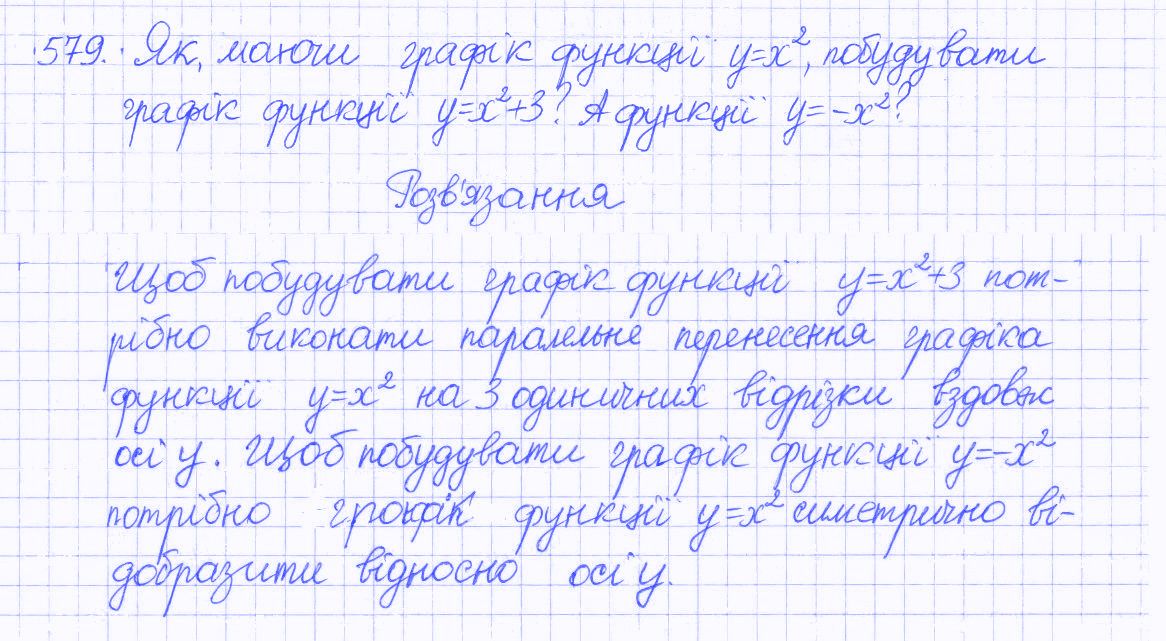 579. Як, маючи графік функції y=x², побудувати
графік функції y=x²+3? А функції y=-x²?
Розв'язання
Щоб побудувати графік функції y=x²+3 пот-
рібно виконати паралельне перенесення графіка
функції y=x² на 3 одиничних відрізки вздовж
осі y. Щоб побудувати графік функції y=-x²
потрібно графік функції y=x² симетрично ві-
добразити відносно осі y.